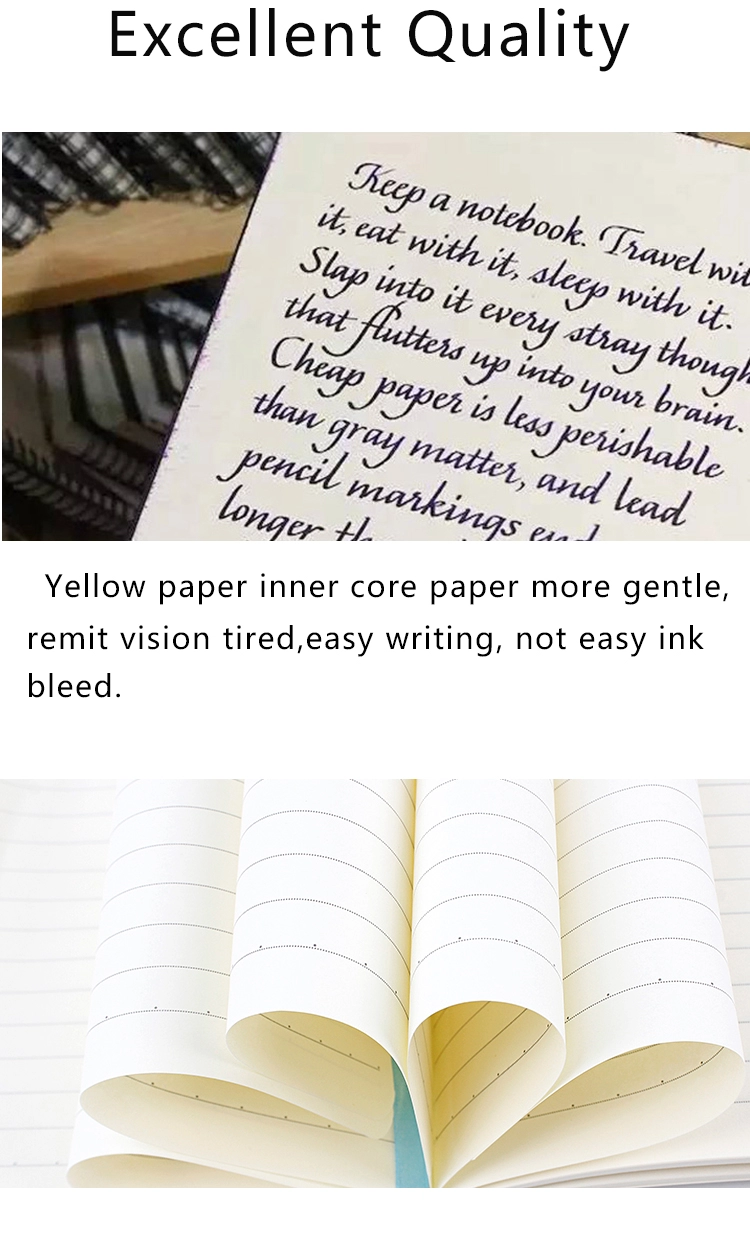 Excellent Quality
Keep a notebook. Travel
it, eat with it, sleep with it.
Slap into it every stray
that flutters up into your brain.
Cheap paper is less perishable
than gray matter, and lead
pencil markings
longer
Yellow paper inner core paper more gentle,
remit vision tired,easy writing, not easy ink
bleed.